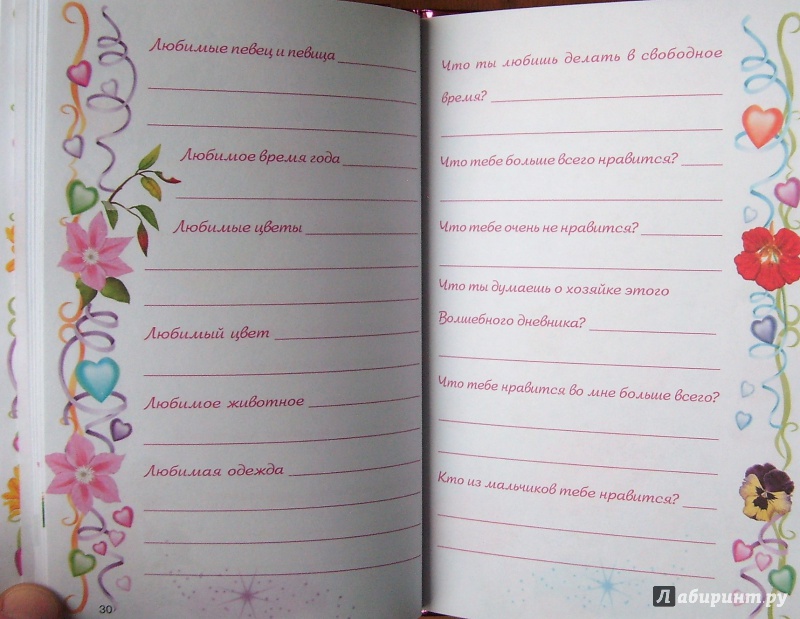 Любимые певец и певица
Любимое время года
Любимые цветы
Любимый цвет
Любимое животное
Любимая одежда
30
Что ты любишь делать в свободное
время?
Что тебе больше всего нравится?
Что тебе очень не нравится?
Что ты думаешь о хозяйке этого
Волшебного дневника?
Что тебе нравится во мне больше всего?
Кто из мальчиков тебе нравится?
Лабиринт.ру